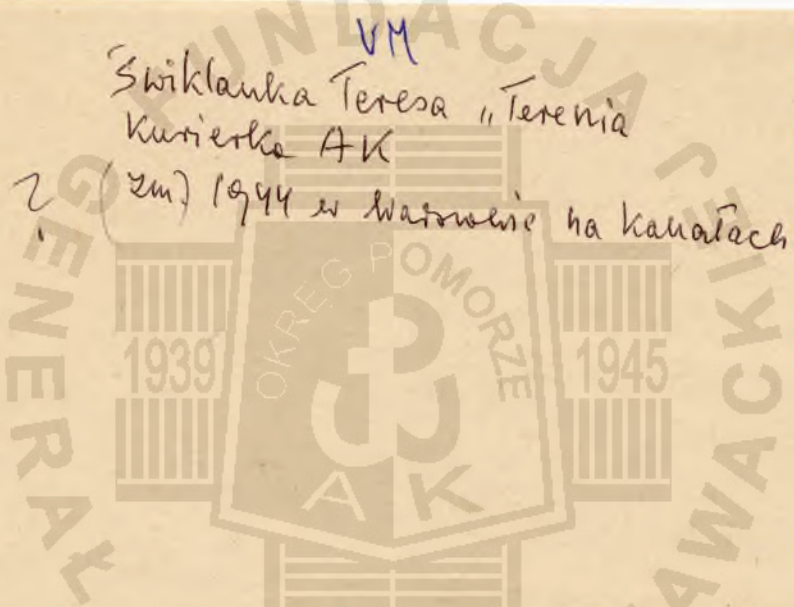 VM
Świklanka Teresa „Terenia
Kurierka AK
? (zm) 1944 w Warszawie na kanałach
FUNDACJA GENERAŁ
WACKIEJ
OKRĘG POMORZE
1939
1945
AK